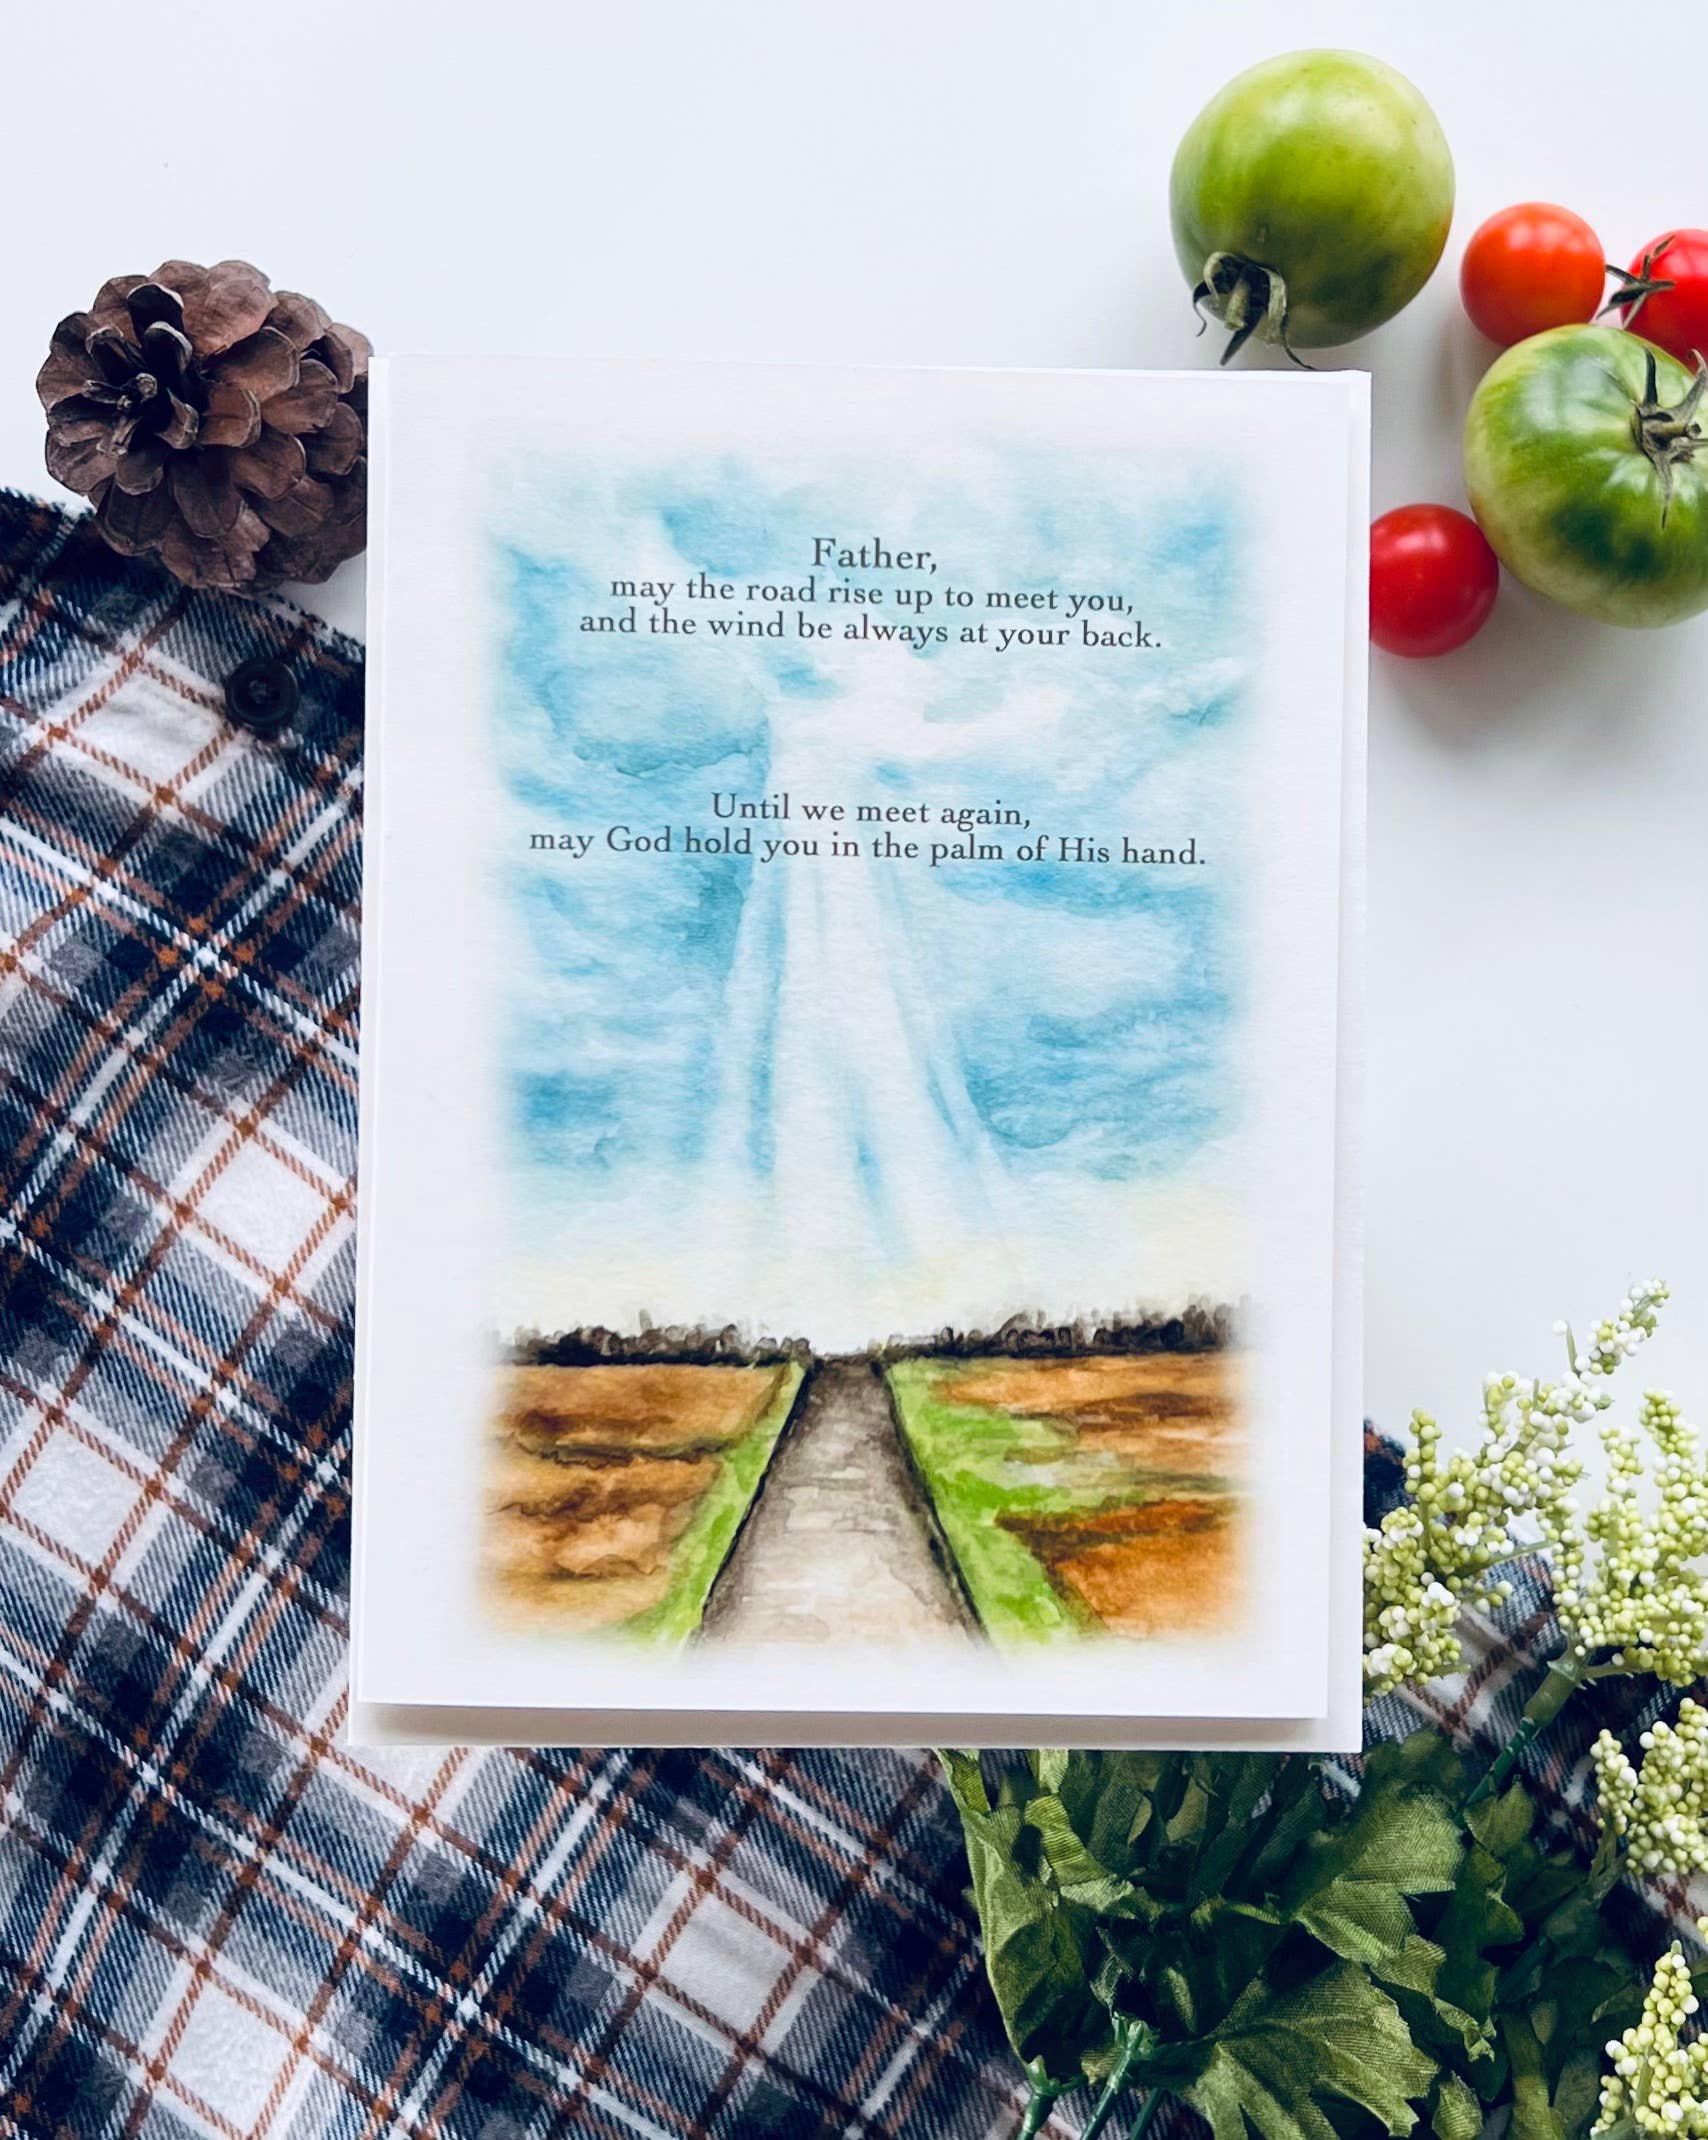 Father,
may the road rise up to meet you,
and the wind be always at your back.
Until we meet again,
may God hold you in the palm of His hand.